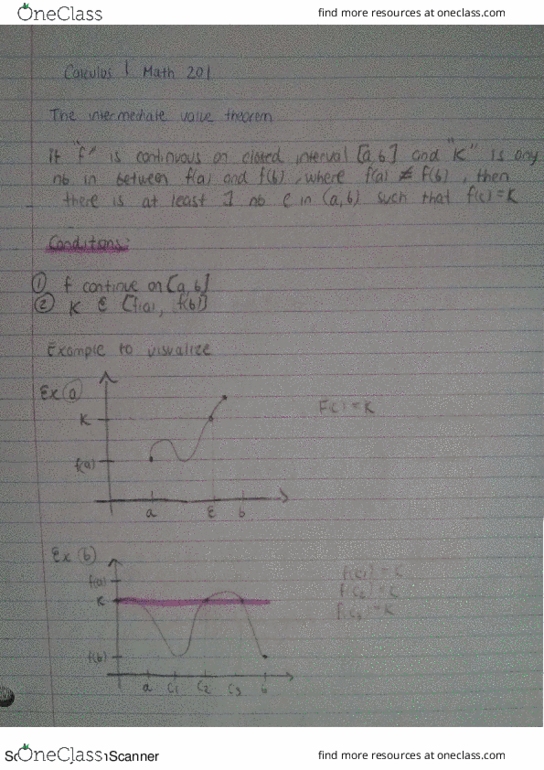 OneClass
find more resources at oneclass.com
Calculus 1 Math 201
The intermediate value theorem
If "f" is continuous on closed interval [a,b] and "K" is any
nb in between f(a) and f(b), where f(a) ≠ f(b), then
there is at least 1 nb c in (a,b) such that f(c)=K
Conditions:
① f continue on [a,b]
② K ∈ [f(a), f(b)]
Example to visualize
Ex ⓐ
F(c)=K
K
f(a)
a c b
Ex ⓑ
f(a)
K
f(b)
a c1 c2 c3 b
f(c1)=K
f(c2)=K
f(c3)=K
OneClass
Scanner
find more resources at oneclass.com